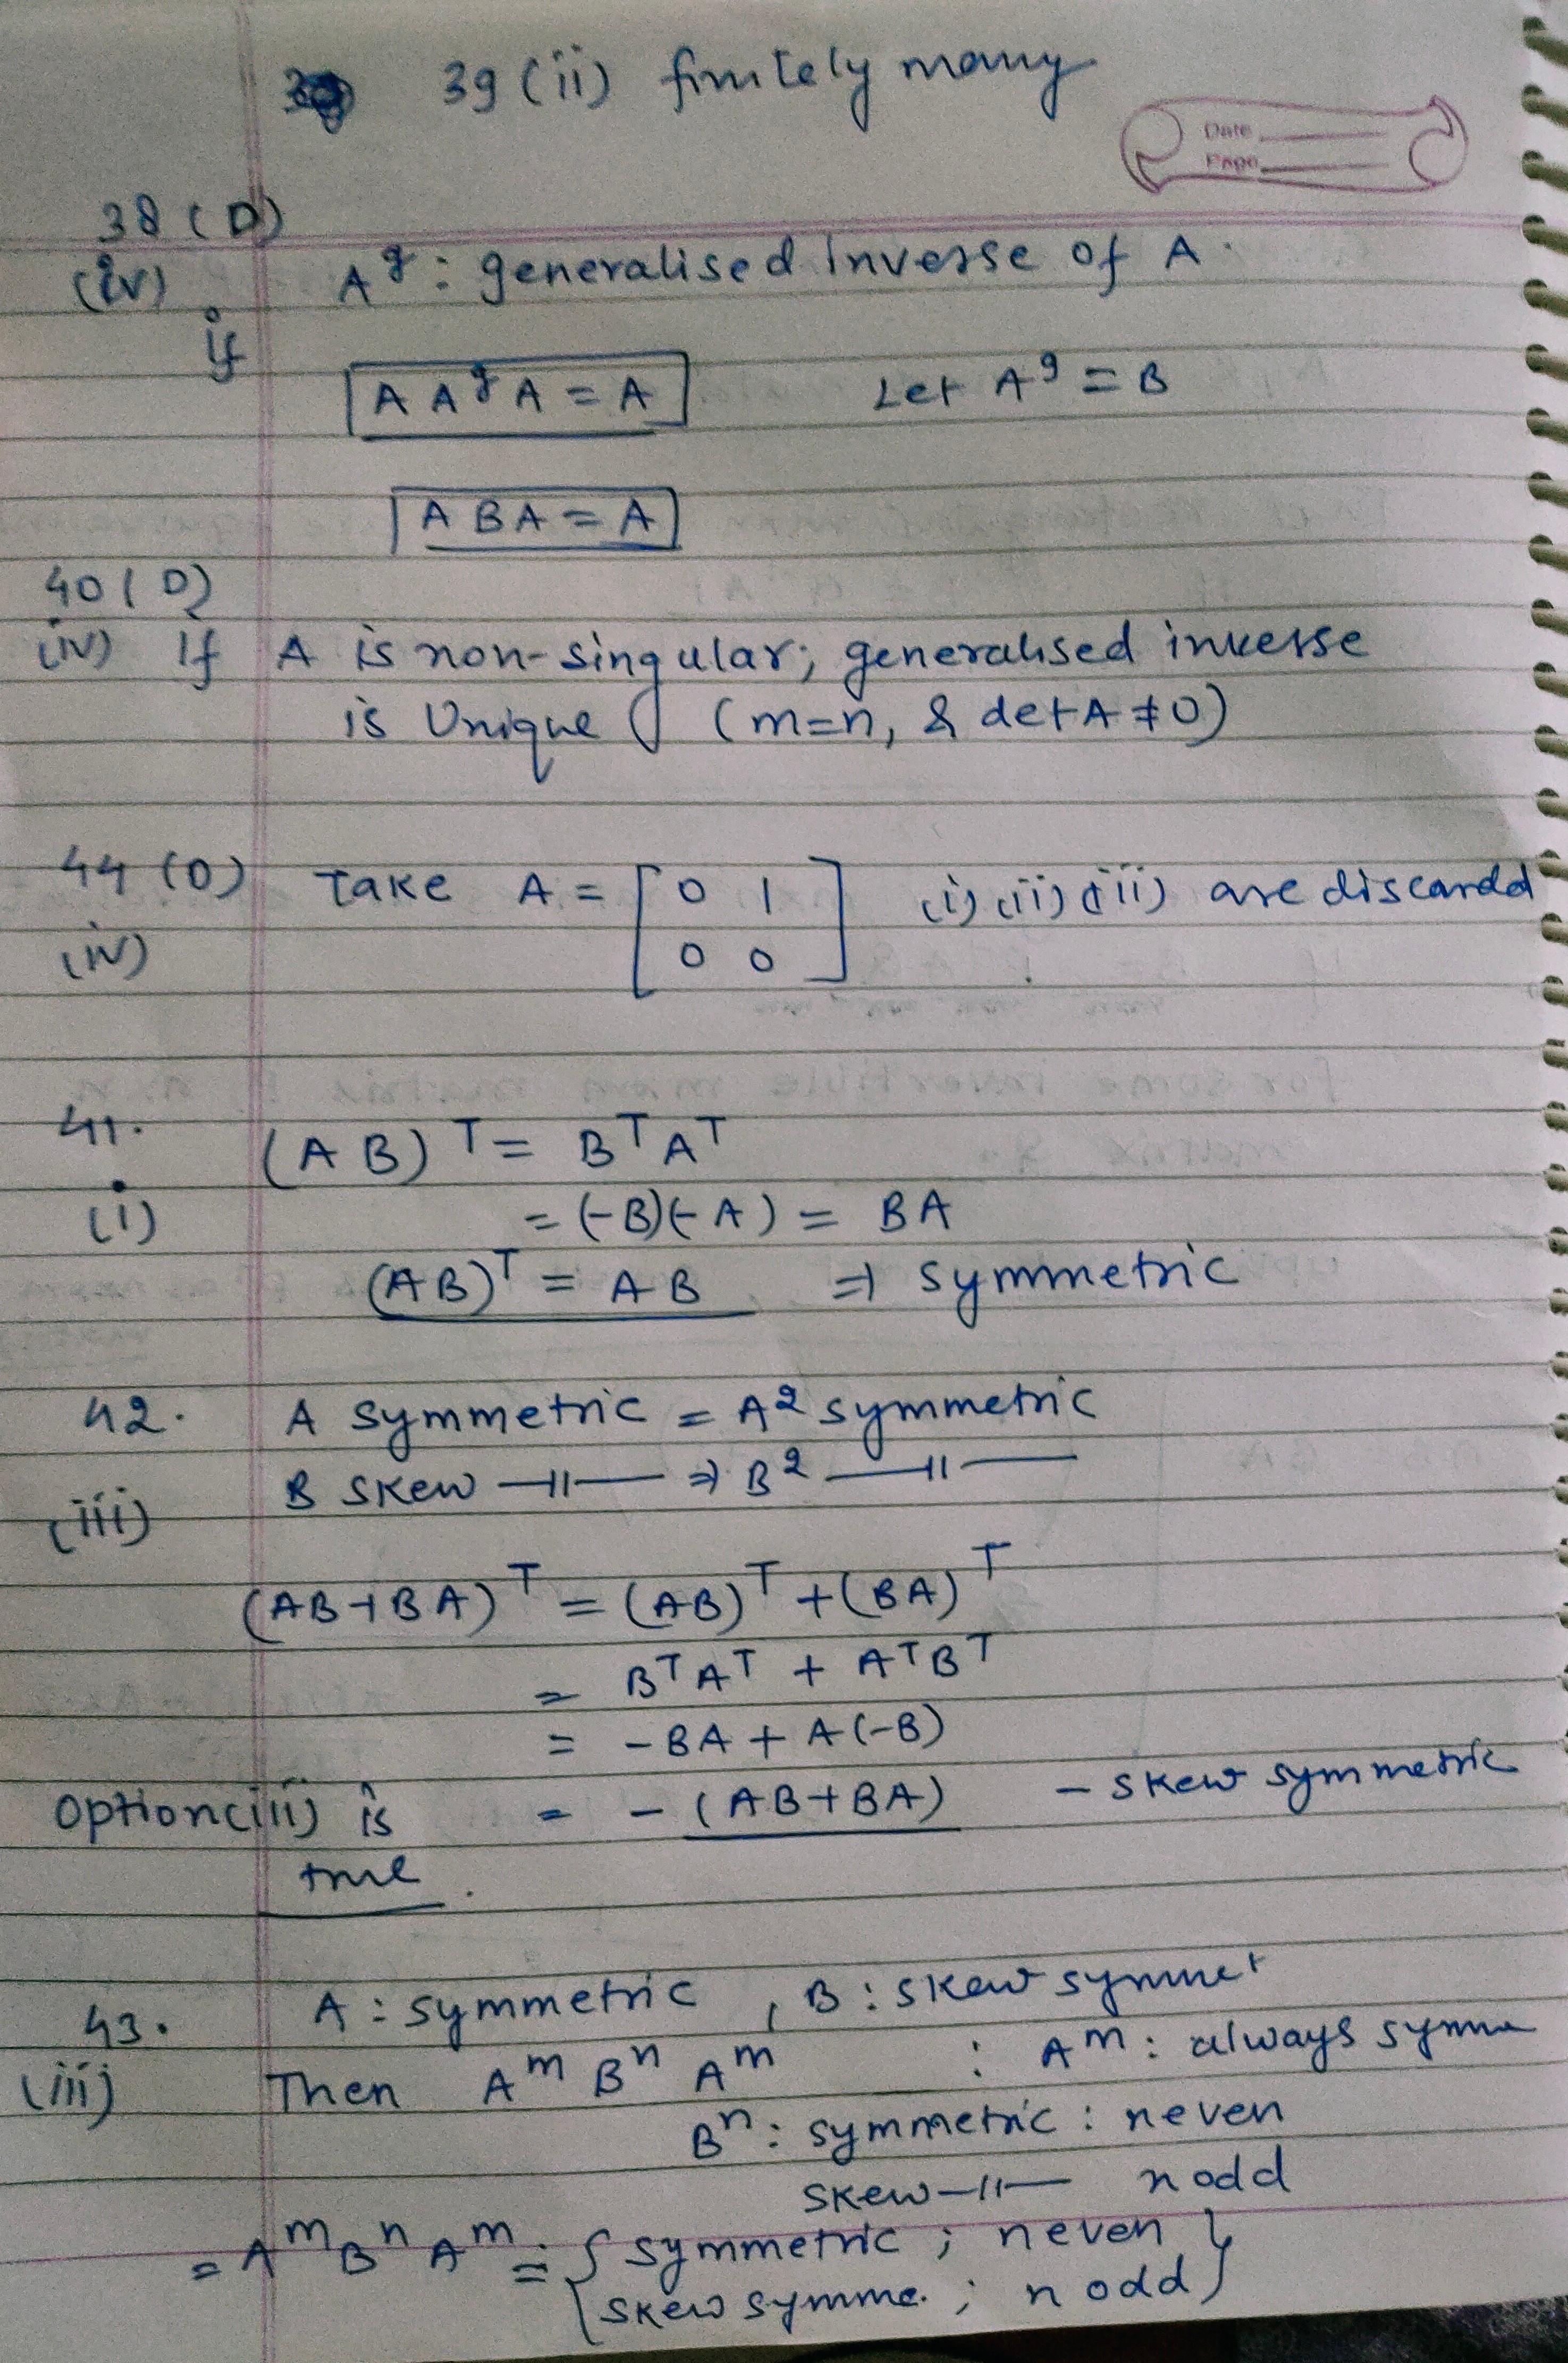 39 (ii) finitely many
Date
Page
38 (D)
(iv) A^g : generalised inverse of A.
if
A A^g A = A Let A^g = B
A B A = A
40 (D)
(iv) If A is non-singular; generalised inverse
is Unique (m=n, & det A ≠ 0)
44 (D) Take A = [ 0 1 (i) (ii) (iii) are discarded
(iv) 0 0 ]
41. (AB)^T = B^T A^T
(i) = (-B)(-A) = BA
(AB)^T = AB ⇒ symmetric
42. A symmetric = A^2 symmetric
B skew —11— ⇒ B^2 —11—
(iii)
(AB+BA)^T = (AB)^T + (BA)^T
= B^T A^T + A^T B^T
= -BA + A(-B)
Option (iii) is = -(AB+BA) - skew symmetric
true.
43. A : symmetric , B : skew symmet
(iii) Then A^m B^n A^m : A^m : always symme
B^n : symmetric : n even
skew —11— n odd
= A^m B^n A^m = { symmetric ; n even }
{ skew symme. ; n odd }